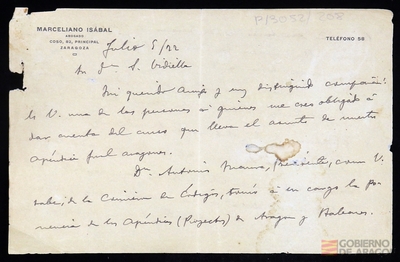 MARCELIANO ISÁBAL
ABOGADO
COSO, 92, PRINCIPAL
ZARAGOZA
TELÉFONO 58
Julio 5/22
Sr Dn S. Vidiella
Mi querido amigo y muy distinguido compañero:
Es V. una de las personas á quienes me creo obligado á
dar cuenta del curso que lleva el asunto de nuestro
Apéndice foral aragonés.
Dn Antonio Maura, Presidente, como V.
sabe, de la Comisión de Códigos, tomó á su cargo la po-
nencia de los Apéndices (Proyectos) de Aragón y Baleares.
GOBIERNO
DE ARAGON